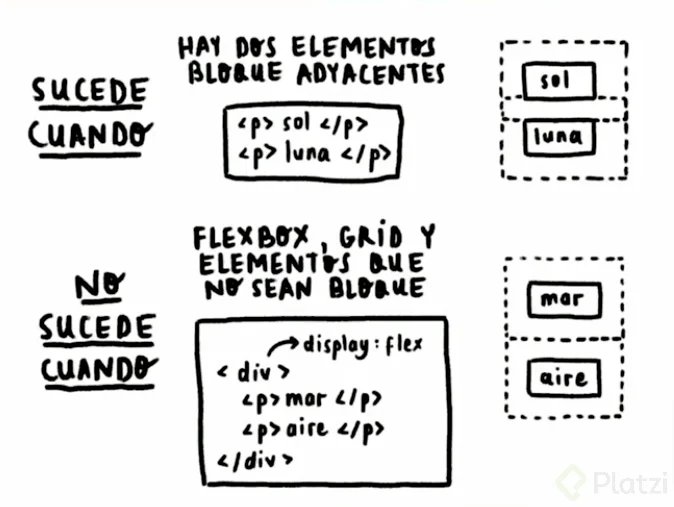 SUCEDE
CUANDO
HAY DOS ELEMENTOS
BLOQUE ADYACENTES
<p> sol </p>
<p> luna </p>
sol
luna
NO
SUCEDE
CUANDO
FLEXBOX, GRID Y
ELEMENTOS QUE
NO SEAN BLOQUE
display: flex
<div>
<p> mar </p>
<p> aire </p>
</div>
mar
aire
Platzi